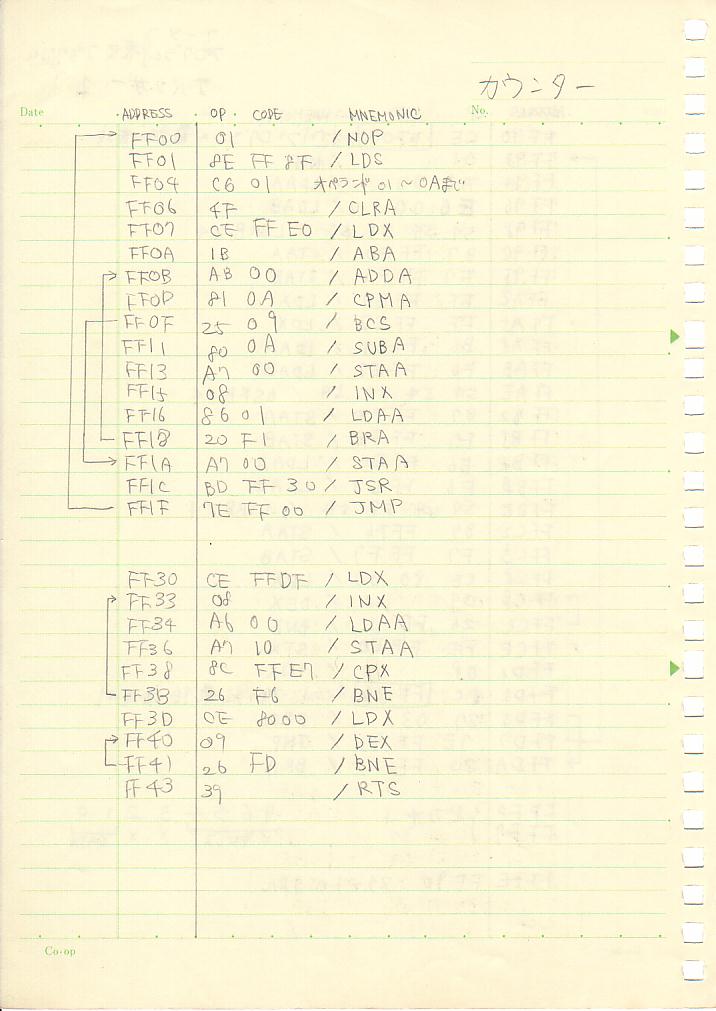 カウンター
Date No.
ADDRESS OP CODE MNEMONIC
FF00 01 /NOP
FF01 8E FF 8F /LDS
FF04 C6 01 オペランド 01～0Aまで
FF06 4F /CLRA
FF07 CE FF E0 /LDX
FF0A 1B /ABA
FF0B AB 00 /ADDA
FF0D 81 0A /CPMA
FF0F 25 09 /BCS
FF11 80 0A /SUBA
FF13 A7 00 /STAA
FF15 08 /INX
FF16 86 01 /LDAA
FF18 20 F1 /BRA
FF1A A7 00 /STAA
FF1C BD FF 30 /JSR
FF1F 7E FF 00 /JMP
FF30 CE FFDF /LDX
FF33 08 /INX
FF34 A6 00 /LDAA
FF36 A7 10 /STAA
FF38 8C FFE7 /CPX
FF3B 26 F6 /BNE
FF3D CE 8000 /LDX
FF40 09 /DEX
FF41 26 FD /BNE
FF43 39 /RTS
Co·op